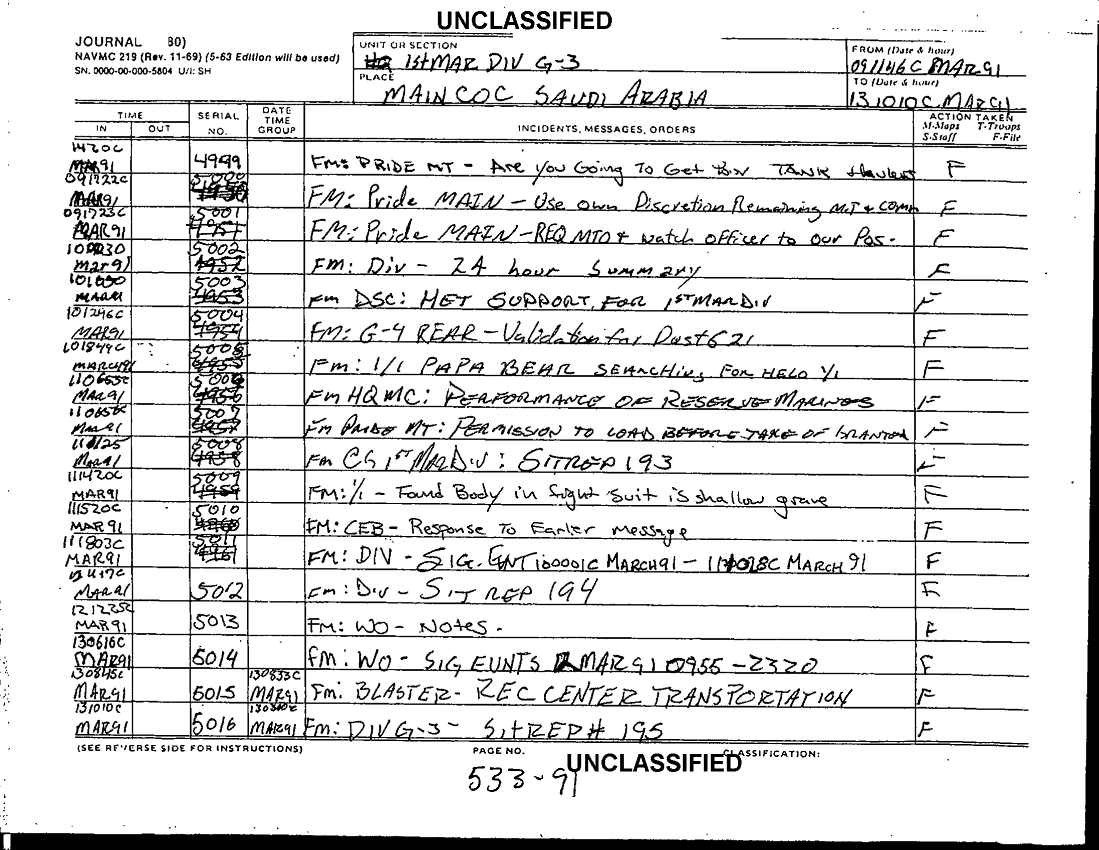 UNCLASSIFIED
JOURNAL 80)
NAVMC 219 (Rev. 11-69) (5-63 Edition will be used)
SN. 0000-00-000-5804 U/I: SH
UNIT OR SECTION
HQ 1st MAR DIV G-3
PLACE
MAIN COC SAUDI ARABIA
FROM (Date & hour)
091146C MAR 91
TO (Date & hour)
131010C MAR 91
TIME
IN OUT
SERIAL NO.
DATE TIME GROUP
INCIDENTS, MESSAGES, ORDERS
ACTION TAKEN
M-Maps T-Troops
S-Staff F-File
1420C MAR 91 4999 FM: PRIDE MT - Are you Going To Get TANK Haulers F
091722C MAR 91 5000 FM: Pride MAIN - Use own Discretion Remaining MT & COMM F
091723C MAR 91 5001 FM: Pride MAIN - REQ MTO & watch officer to our Pos. F
Mar 91 5002 Fm: Div - 24 hour Summary F
MAR 91 5003 Fm DSC: HET SUPPORT FOR 1ST MAR DIV F
101246C MAR 91 5004 FM: G-4 REAR - Validation for Dust 621 F
101849C MARCH 91 5005 Fm: 1/1 PAPA BEAR SEARCHING FOR HELO 1/1 F
110653C MAR 91 5006 Fm HQMC: PERFORMANCE OF RESERVE MARINES F
Mar 91 5007 Fm PRIDE MT: PERMISSION TO LOAD BEFORE TAKE OF GRANTED F
Mar 91 5008 Fm CG 1st MarDiv: SITREP 193 F
111420C MAR 91 5009 FM: 1/1 - Found Body in flight suit is shallow grave F
111520C MAR 91 5010 FM: CEB - Response To Earlier message F
111803C MAR 91 5011 FM: DIV - SIG. EVNT 100001C MARCH 91 - MARCH 91 F
MAR 91 5012 Fm: Div - SITREP 194 F
MAR 91 5013 FM: WO - Notes. F
130616C MAR 91 5014 fm: WO - SIG EVNTS MAR 91 0955 - 2320 F
130845C MAR 91 5015 130833C MAR 91 Fm: BLASTER - REC CENTER TRANSPORTATION F
131010C MAR 91 5016 MAR 91 Fm: DIV G-3 - SITREP # 195 F
(SEE REVERSE SIDE FOR INSTRUCTIONS)
PAGE NO.
533-91
CLASSIFICATION:
UNCLASSIFIED